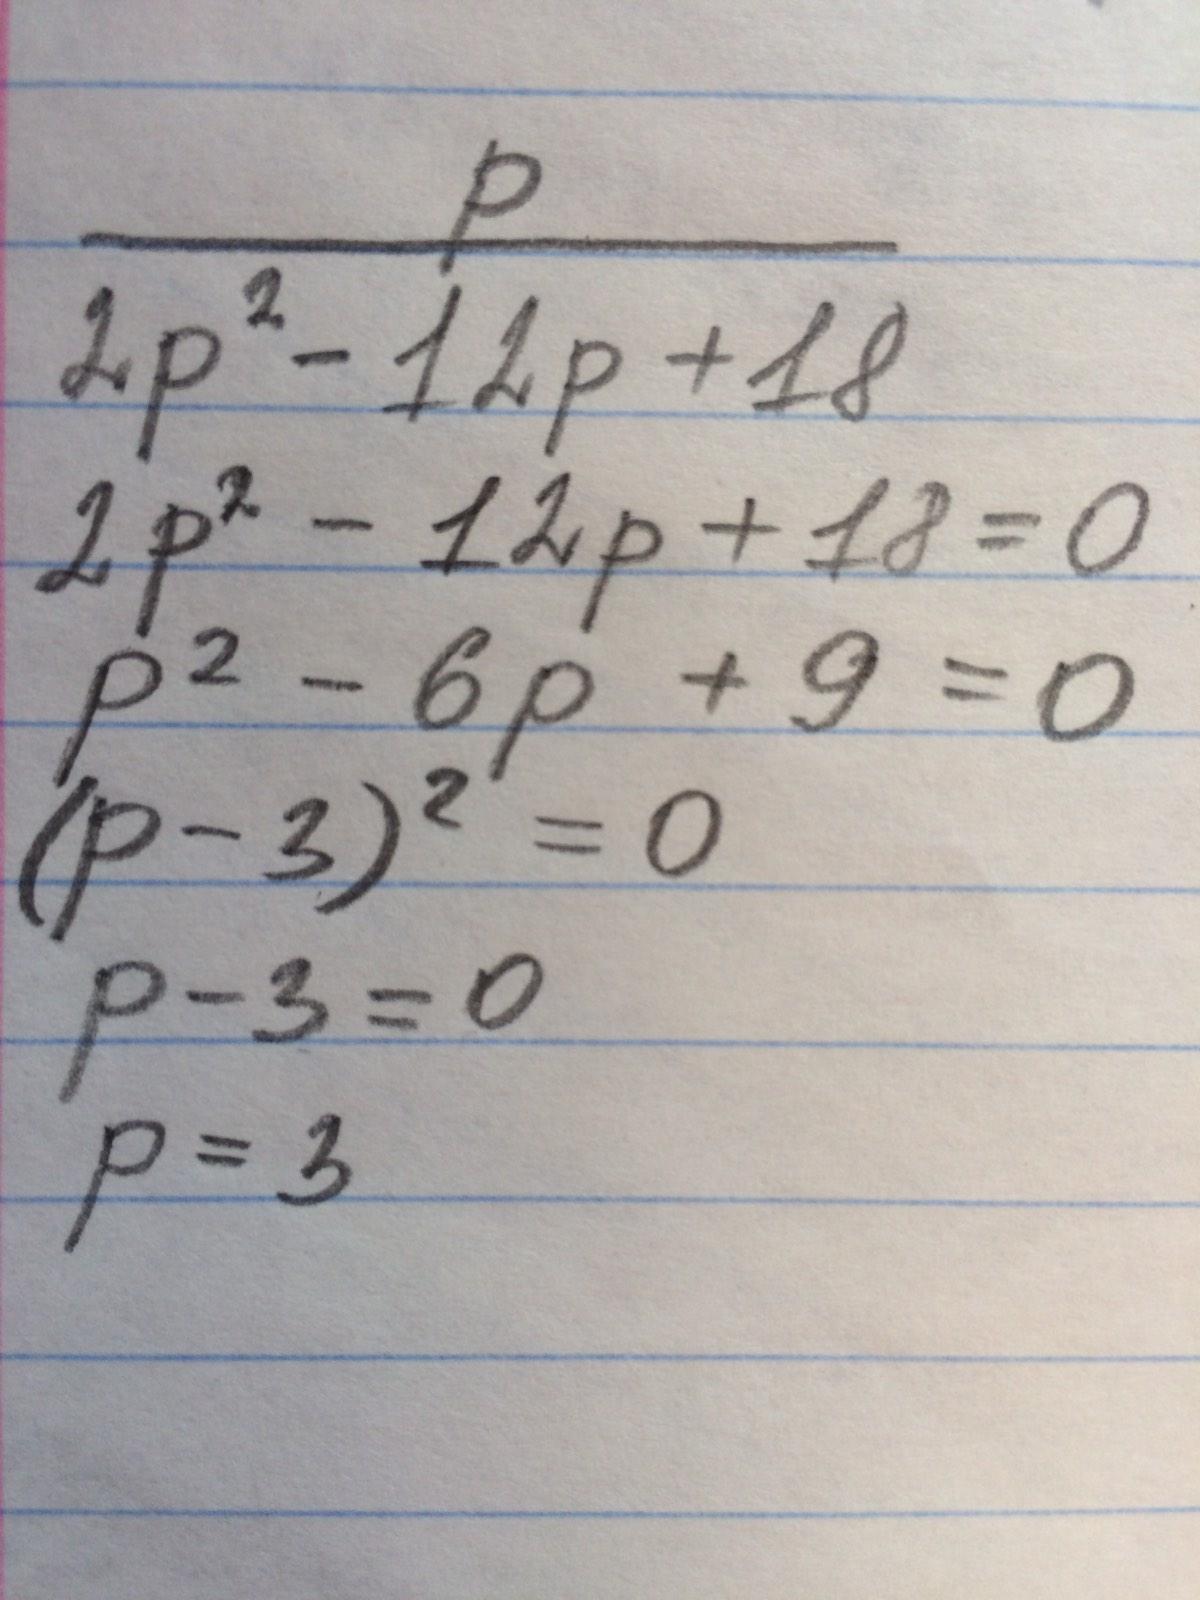 p
2p² - 12p + 18
2p² - 12p + 18 = 0
p² - 6p + 9 = 0
(p - 3)² = 0
p - 3 = 0
p = 3